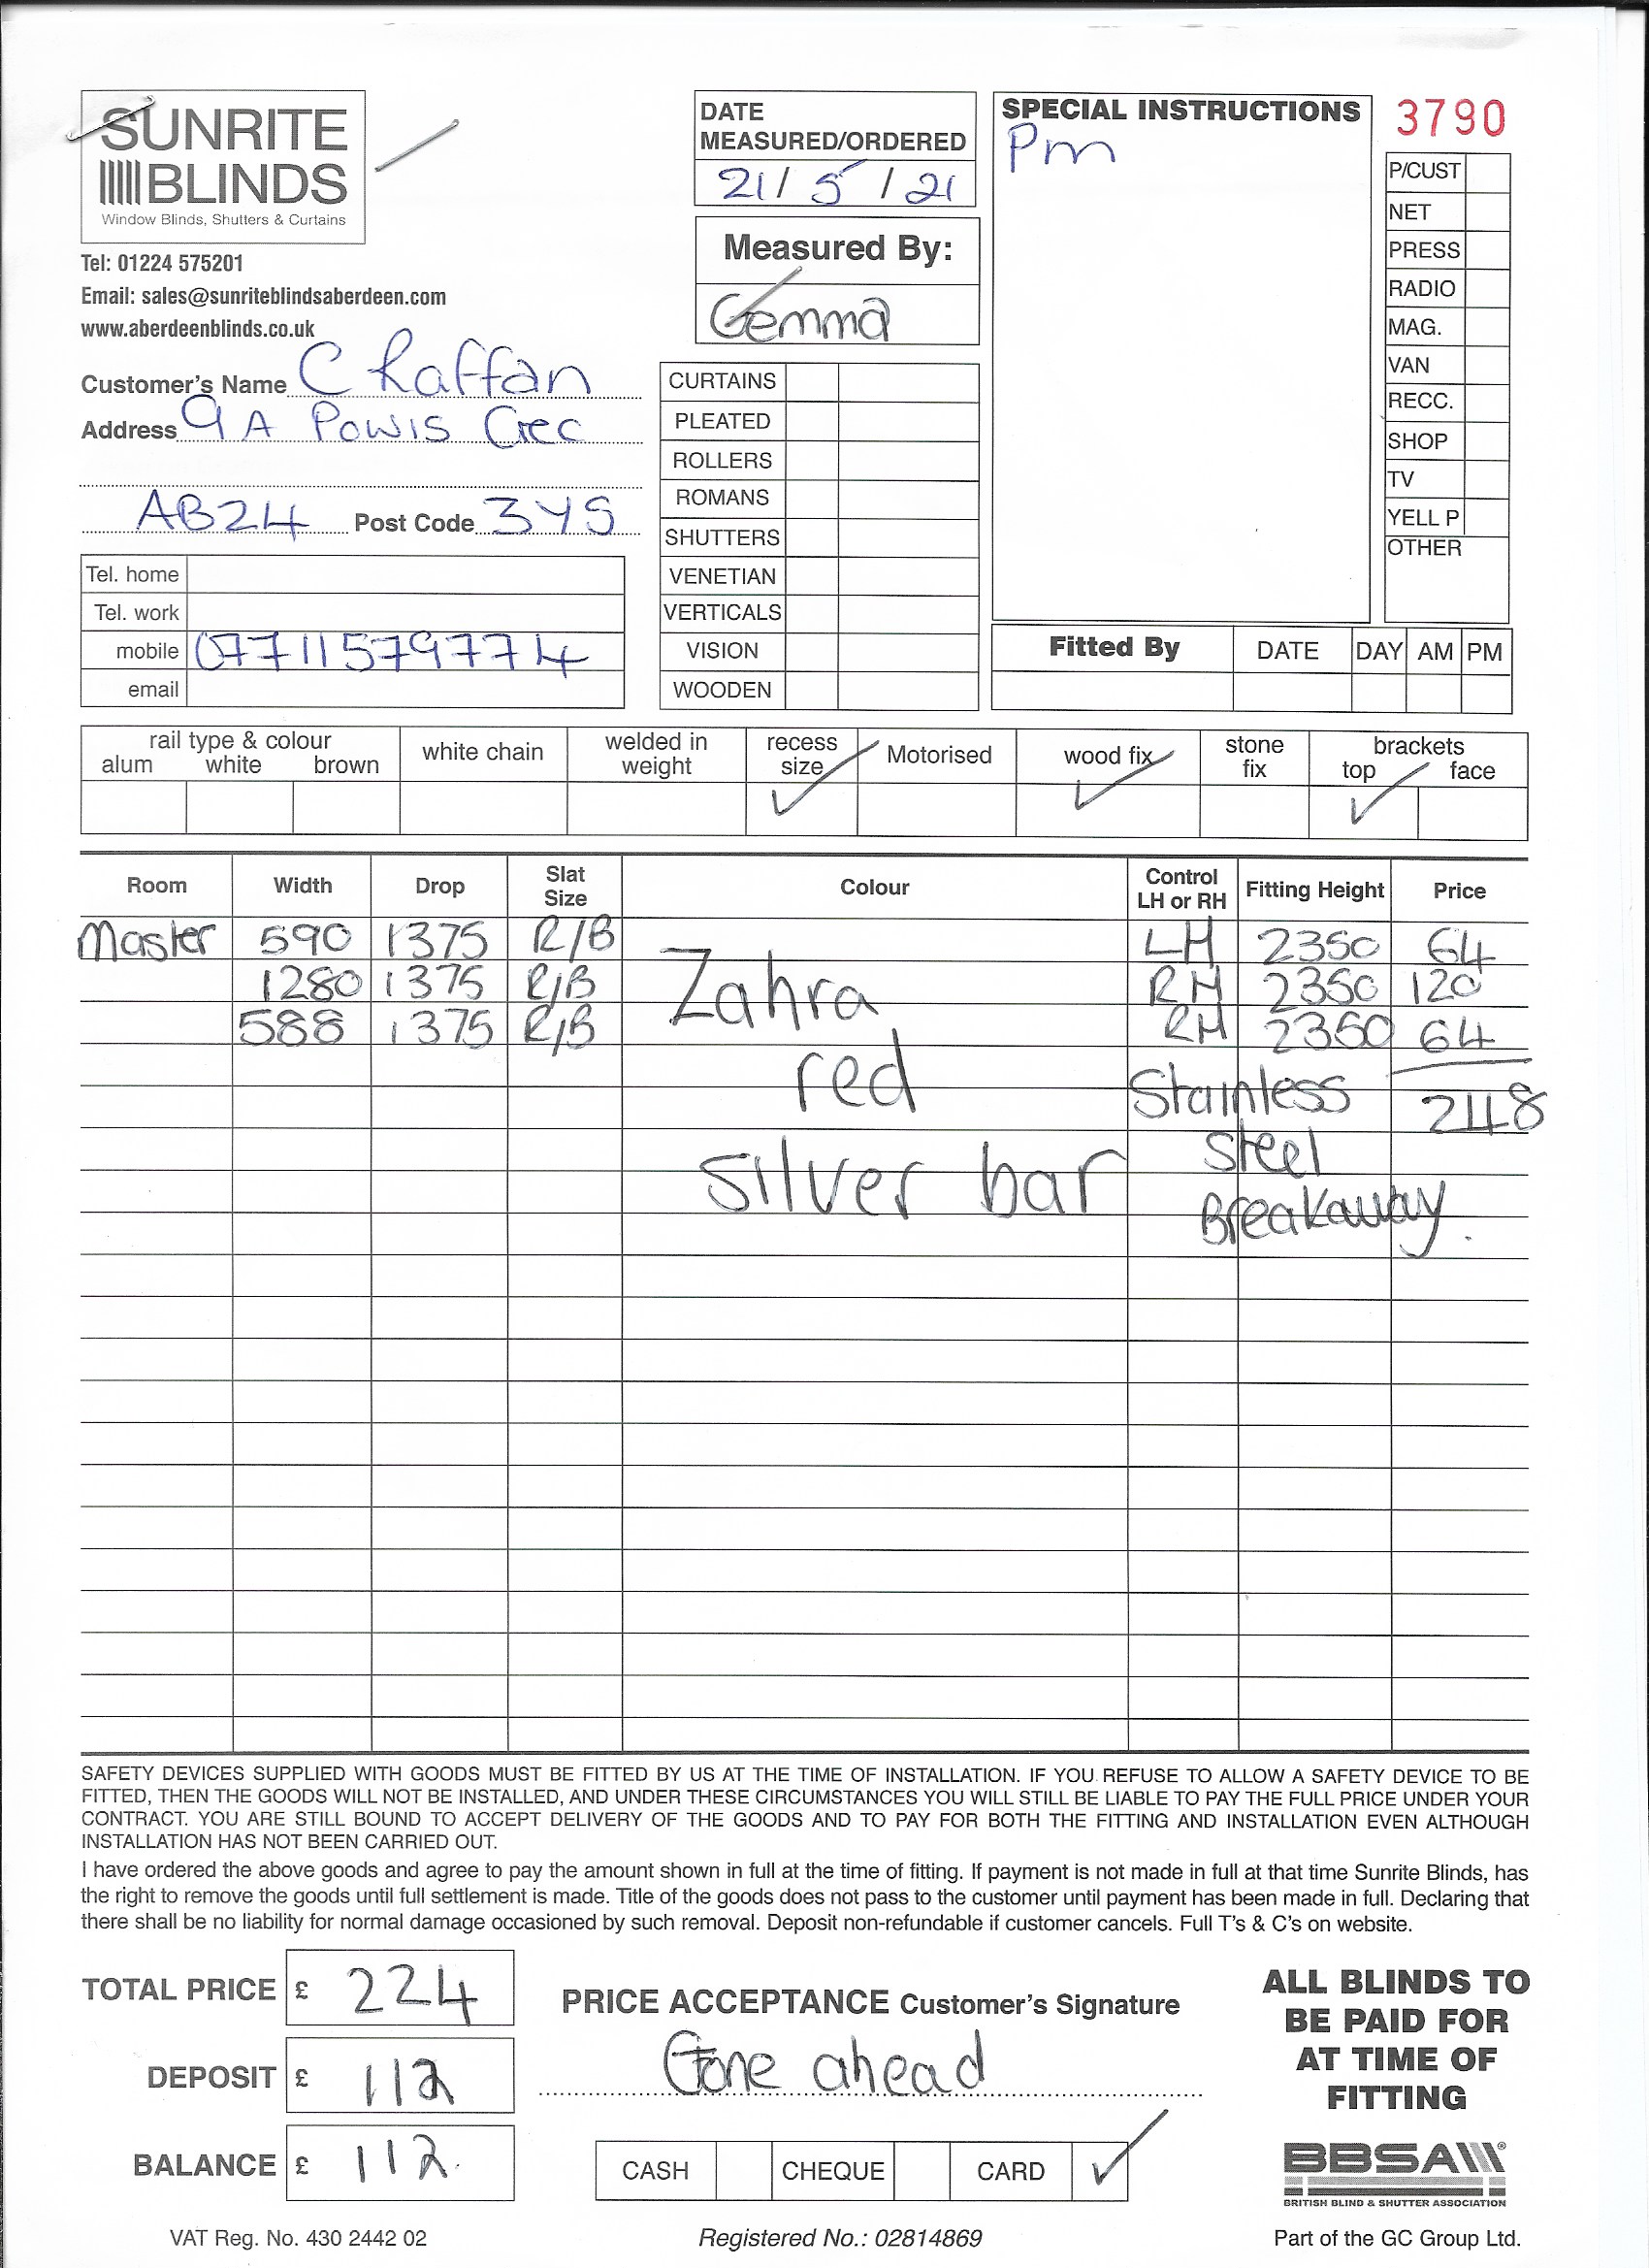 SUNRITE
BLINDS
Window Blinds, Shutters & Curtains
Tel: 01224 575201
Email: sales@sunriteblindsaberdeen.com
www.aberdeenblinds.co.uk
Customer's Name C Raffan
Address 9A Powis Crec
AB24 Post Code 3YS
Tel. home
Tel. work
mobile 07711579774
email
DATE
MEASURED/ORDERED
21/5/21
Measured By:
Gemma
CURTAINS
PLEATED
ROLLERS
ROMANS
SHUTTERS
VENETIAN
VERTICALS
VISION
WOODEN
SPECIAL INSTRUCTIONS
Pm
3790
P/CUST
NET
PRESS
RADIO
MAG.
VAN
RECC.
SHOP
TV
YELL P
OTHER
Fitted By DATE DAY AM PM
rail type & colour
alum white brown
white chain
welded in
weight
recess
size
✓
Motorised
wood fix
✓
stone
fix
brackets
top face
✓
Room Width Drop Slat Size Colour Control LH or RH Fitting Height Price
Master 590 1375 R/B LH 2350 64
1280 1375 R/B Zahra RH 2350 120
588 1375 R/B RH 2350 64
red Stainless 248
silver bar Steel
Breakaway.
SAFETY DEVICES SUPPLIED WITH GOODS MUST BE FITTED BY US AT THE TIME OF INSTALLATION. IF YOU REFUSE TO ALLOW A SAFETY DEVICE TO BE
FITTED, THEN THE GOODS WILL NOT BE INSTALLED, AND UNDER THESE CIRCUMSTANCES YOU WILL STILL BE LIABLE TO PAY THE FULL PRICE UNDER YOUR
CONTRACT. YOU ARE STILL BOUND TO ACCEPT DELIVERY OF THE GOODS AND TO PAY FOR BOTH THE FITTING AND INSTALLATION EVEN ALTHOUGH
INSTALLATION HAS NOT BEEN CARRIED OUT.
I have ordered the above goods and agree to pay the amount shown in full at the time of fitting. If payment is not made in full at that time Sunrite Blinds, has
the right to remove the goods until full settlement is made. Title of the goods does not pass to the customer until payment has been made in full. Declaring that
there shall be no liability for normal damage occasioned by such removal. Deposit non-refundable if customer cancels. Full T's & C's on website.
TOTAL PRICE £ 224
DEPOSIT £ 112
BALANCE £ 112.
PRICE ACCEPTANCE Customer's Signature
Gone ahead
CASH CHEQUE CARD ✓
ALL BLINDS TO
BE PAID FOR
AT TIME OF
FITTING
BBSA
BRITISH BLIND & SHUTTER ASSOCIATION
VAT Reg. No. 430 2442 02
Registered No.: 02814869
Part of the GC Group Ltd.